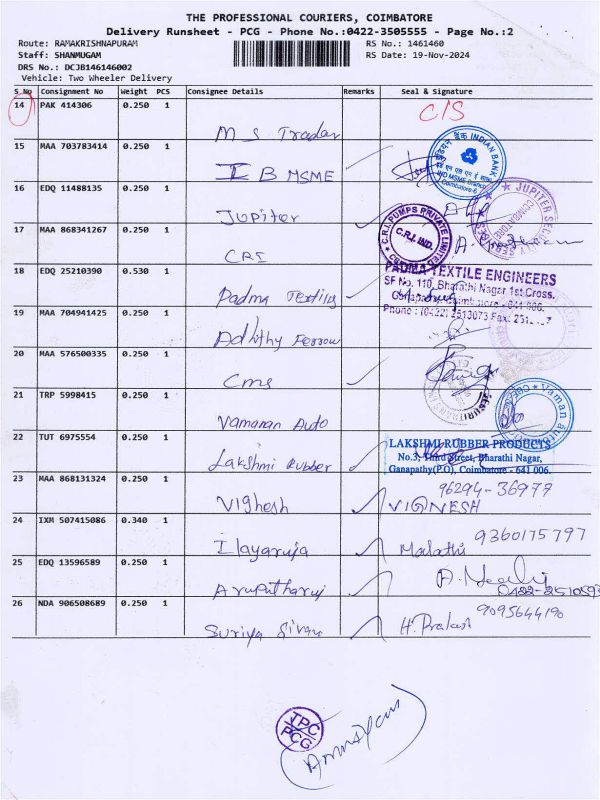 THE PROFESSIONAL COURIERS, COIMBATORE
Delivery Runsheet - PCG - Phone No.:0422-3505555 - Page No.:2
Route: RAMAKRISHNAPURAM
RS No.: 1461460
Staff: SHANMUGAM
RS Date: 19-Nov-2024
DRS No.: DCJB146146002
Vehicle: Two Wheeler Delivery
S No Consignment No Weight PCS Consignee Details Remarks Seal & Signature
14 PAK 414306 0.250 1
C/S
M S Trader
15 MAA 703783414 0.250 1
INDIAN BANK
IND MSME Branch
Coimbatore-6
I B MSME
16 EDQ 11488135 0.250 1
JUPITER SECURITY
COIMBATORE
Jupiter
17 MAA 868341267 0.250 1
C.R.I. PUMPS PRIVATE LIMITED
C.R.I. IND.
CRI
18 EDQ 25210390 0.530 1
PADMA TEXTILE ENGINEERS
SF No. 110, Bharathi Nagar 1st Cross,
Phone : (0422) 2513073 Fax:
Padma Textiles
19 MAA 704941425 0.250 1
20 MAA 576500335 0.250 1
21 TRP 5998415 0.250 1
Vamanan Auto
22 TUT 6975554 0.250 1
LAKSHMI RUBBER PRODUCTS
No.3, Third Street, Bharathi Nagar,
Ganapathy(P.O), Coimbatore - 641 006.
Lakshmi Rubber
23 MAA 868131324 0.250 1
96294-36977
Vighesh
VIGNESH
24 IXM 507415086 0.340 1
9360175797
Ilayaraja
Malathi
25 EDQ 13596589 0.250 1
0422-2510593
26 NDA 906508689 0.250 1
9095644190
Suriya Sivan
H. Prakash
TPC
PCG